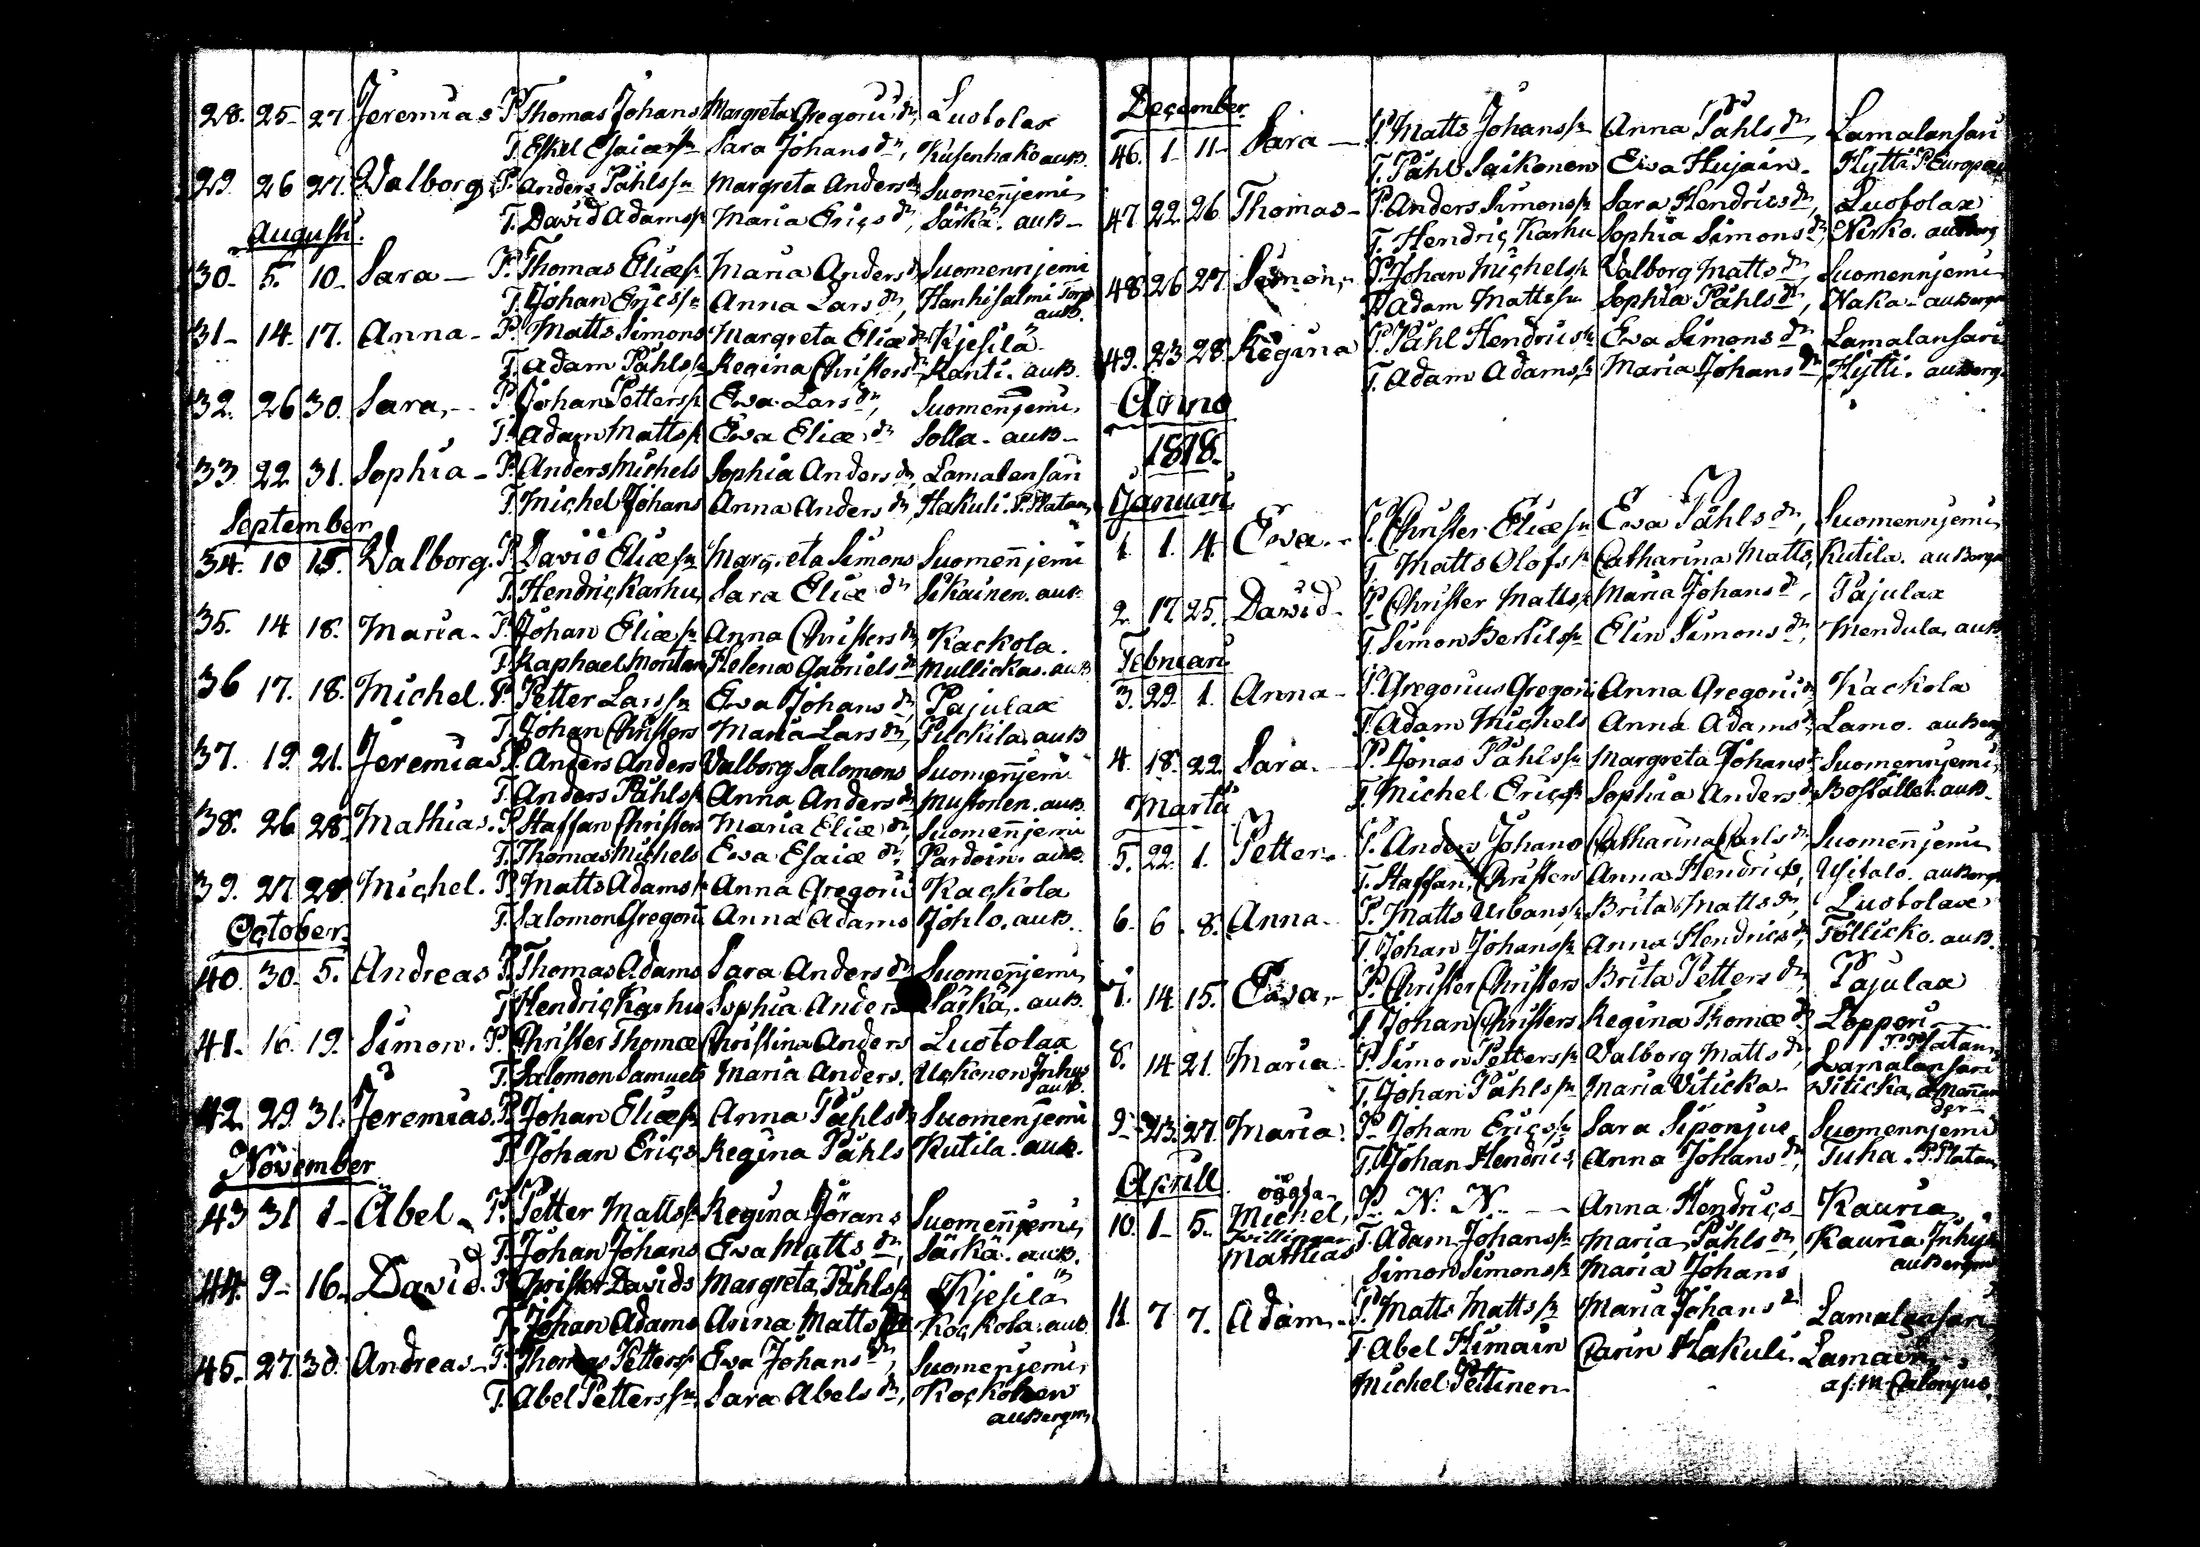 28. 25. 27 Jeremias P. Thomas Johans Margreta Gregorii dr, Luotolax
T. Eskel Esaiæ sn Sara Johans dr, Kusenhako auß.
29. 26 27. Walborg P. Anders Påhls sn Margreta Anders dr Suomenjemi
T. David Adams sn Maria Erics dr, Särkä. auß-
Augusti.
30- 5. 10- Sara- P. Thomas Eliæ sn Maria Anders d Suomennjemi
T. Johan Erics sn Anna Lars dr, Hanhisalmi Torp
auß.
31- 14. 17. Anna- P. Matts Simons Margreta Eliæ dr Kjesilä
T. Adam Påhls sn Regina Christers dr Kanti. auß.
32. 26 30. Sara,- P. Johan Petters sn Ewa Lars dr, Suomenjemi,
T. Adam Matts sn Ewa Eliæ dr Solla- auß-
33. 22 31. Sophia- P. Anders Michels Sophia Anders dr, Lamalansari
T. Michel Johans Anna Anders dr, Hakuli. P. Platan,
September
34. 10 15. Walborg. P. David Eliæ sn Margreta Simons Suomenjemi
T. Hendric Karhu, Sara Eliæ dr Sikainen. auß
35. 14 18. Maria- P. Johan Eliæ sn Anna Christers dr Kackola.
T. Raphael Montan Helena Gabriels dr Mullickas. auß
36 17. 18. Michel. P. Petter Lars sn Ewa Johans dr, Pajulax
T. Johan Christers Maria Lars dr, Puckila. auß
37. 19. 21. Jeremias P. Anders Anders Walborg Salomons Suomenjemi
T. Anders Påhls sn Anna Anders dr Mustonen. auß.
38. 26 28. Mathias. P. Staffan Christers Maria Eliæ dr, Suomenjemi
T. Thomas Michels Ewa Esaiæ dr, Pardoin. auß.
39. 27. 28. Michel. P. Matts Adams sn Anna Gregorii Kackola
T. Salomon Gregorii Anna Adams Johlo. auß.
October.
40. 30. 5. Andreas P. Thomas Adams Sara Anders dr Suomenjemi,
T. Hendric Karhu Sophia Anders Särkä. auß.
41. 16. 19. Simon. P. Christer Thomæ Christina Anders Luotolax
T. Salomon Samuels Maria Anders. Uckonen Inhys
auß.
42. 29. 31. Jeremias. P. Johan Eliæ sn Anna Påhls dr Suomenjemi
T. Johan Erics Regina Påhls Kutila. auß.
November
43 31 1- Abel- P. Petter Matts sn Regina Jörans Suomenjemi,
T. Johan Johans Ewa Matts dr, Särkä. auß.
44. 9- 16- David. P. Christer Davids Margreta Påhls Kjesilä
T. Johan Adams Anna Matts Kockola. auß
45. 27. 30. Andreas- P. Thomas Petters sn Ewa Johans dr, Suomenjemi,
T. Abel Petters sn, Sara Abels dr, Kockonen
außergm,
December.
46. 1- 11- Sara- P. Matts Johans sn Anna Påhls dr, Lamalansari
T. Påhl Saikonen Ewa Hujain. Hytti P. Europæus
47 22 26 Thomas- P. Anders Simons sn Sara Hendrics dr, Luotolax
T. Hendric Karhu Sophia Simons dr, Nirko. außerg
48 26 27 Simon,- P. Johan Michels sn Walborg Matts dr, Suomennjemi
T. Adam Matts sn Sophia Påhls dr, Naka- außergm
49. 23 28. Regina P. Påhl Hendrics sn Ewa Simons dr Lamalansari
T. Adam Adams sn Maria Johans dr, Hytti. außerg.
Anno
1818.
Januari
1. 1. 4 Ewa.- P. Christer Eliæ sn Ewa Påhls dr, Suomennjemi,
T Matts Olofs sn Catharina Matts, Kutila. außergm
2. 17 25. David- P. Christer Matts sn Maria Johans d, Pajulax
T. Simon Bertils sn Elin Simons dr, Mendula, auß
Februari
3. 29. 1. Anna- P. Gregorius Gregorii Anna Gregorii dr Kackola
T. Adam Michels Anna Adams dr Lamo. außerg
4. 18. 22 Sara.- P. Jonas Påhls sn Margreta Johans Suomennjemi,
T. Michel Erics sn Sophia Anders dr Boställe. auß-
Martii
5. 22. 1. Petter. P. Anders Johans Catharina Carls dr, Suomenjemi
T. Staffan, Christers Anna Hendrics, Uitalo. außergm
6. 6. 8. Anna- P. Matts Urbans sn Brita Matts dr, Luotolax
T. Johan Johans sn Anna Hendrics dr, Töllicko. auß.
7. 14. 15. Ewa,- P. Christer Christers Brita Petters dr, Pajulax
T. Johan Christers Regina Thomæ dr Lopperi-
P. Platan,
8. 14 21. Maria- P. Simon Petters sn Walborg Matts dr, Lamalansari
T. Johan Påhls sn Maria Witicka- Witicka, af Menan
der-
9- 23. 27. Maria. P. Johan Erics sn Sara Siponjue Suomennjemi
T. Johan Hendrics, Anna Johans dr, Tuha. P. Platan,
Aprill
oägta
10. 1- 5- Michel, P. N. N.- Anna Hendrics- Kauria
Twillingar
Mathias T. Adam Johans sn Maria Påhls dr, Kauria Inhys
Simon Simons sn Maria Johans außergm
11. 7 7. Adam.- P. Matts Matts sn Maria Johans d Lamalansari
T Abel Himain Carin Hakuli. Lamain
Michel Pettinen- af: M. Calonjus.